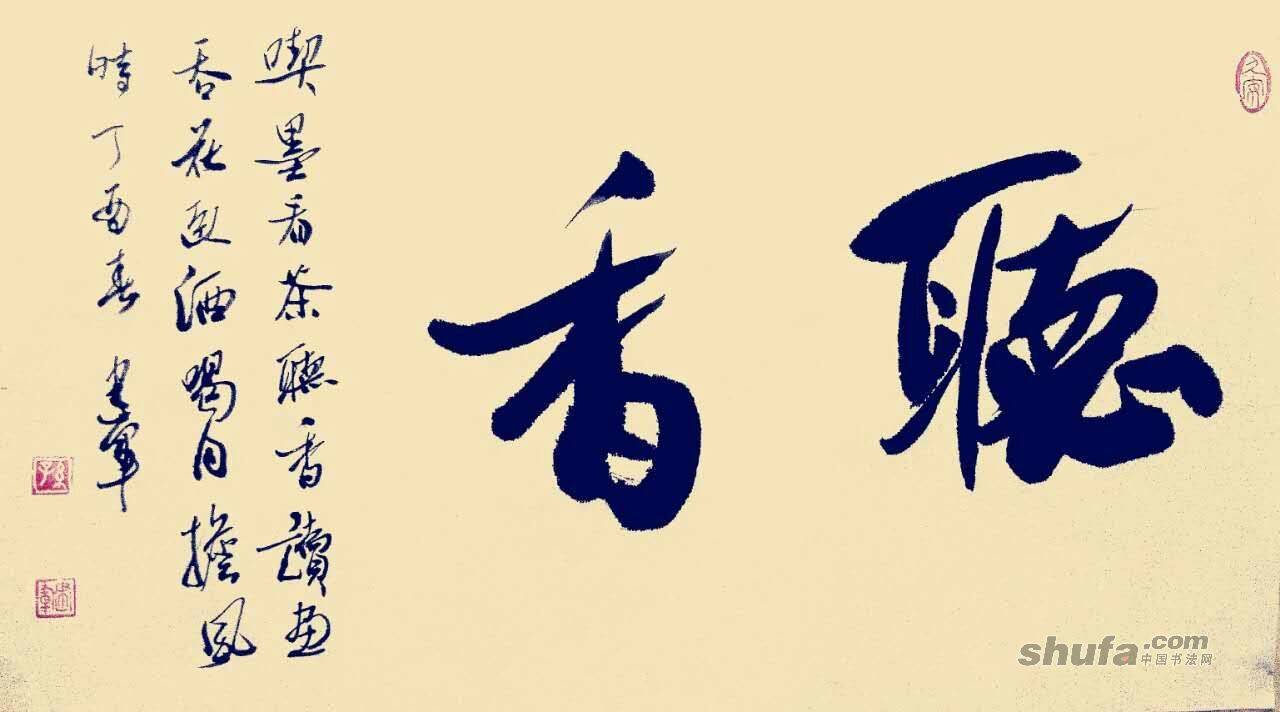 聽香
喫墨看茶聽香讀畫
吞花臥酒喝月擔風
時丁酉春
shufa.com
中国书法网